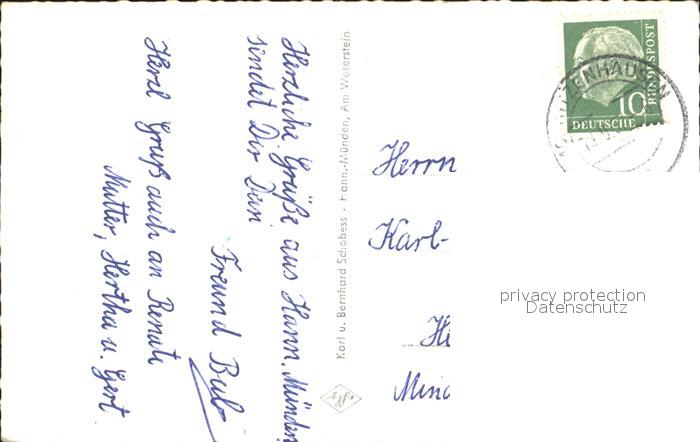 Herzliche Grüße aus Hann. Münden
sendet Dir Dein
Freund Bub
Herzl Gruß auch an Renate
Mutter, Hertha u. Gert
Karl u. Bernhard Schobess · Hann.-Münden, Am Weserstein
BUNDESPOST
10
DEUTSCHE
Herrn
Karl-
privacy protection
Datenschutz
Hi
Mind